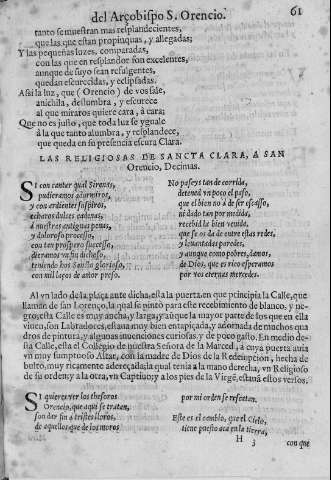 del Arçobispo S. Orencio. 61
tanto se muestran mas resplandecientes,
que las que estan propinquas, y allegadas;
Y las pequeñas luzes, comparadas,
con las que en resplandor son excelentes,
aunque de suyo sean refulgentes,
quedan escurecidas, y eclipsadas.
Assi la luz, que (Orencio) de vos sale,
anichila, deslumbra, y escurece
al que miraros quiere cara, à cara;
Que no es justo, que toda luz se yguale
à la que tanto alumbra, y resplandece,
que queda en su presencia escura Clara.
LAS RELIGIOSAS DE SANCTA CLARA, A SAN
Orencio, Decimas.
SI con cantar qual Sirenas,
pudieramos adormiros,
y con ardientes suspiros,
echaros dulces cadenas,
à nuestras antiguas penas,
y doloroso processo,
con tan prospero sucesso,
dieramos un fin dichoso,
teniendo hos Sancto glorioso,
con mil laços de amor preso.
No passeys tan de corrida,
detened un poco el passo,
que el bien no à de ser escasso,
ni dado tan por medida,
recebid la bien venida,
que se os da de entre estas redes,
y levantadas paredes,
y aunque como pobres, damos,
de Dios, que es rico esperamos
por vos eternas mercedes.
Al un lado de la plaça ante dicha, esta la puerta, en que principia la Calle, que
llaman de san Lorenço, la qual se pintò para este recebimiento de blanco, y ne-
gro, esta Calle es muy ancha, y larga, y aũque la mayor parte de los que en ella
viuen, son Labradores, estaua muy bien entapiçada, y adornada de muchos qua
dros de pintura, y algunas inuenciones curiosas, y de poco gasto. En medio de-
sta Calle, esta el Collegio de nuestra Señora de la Merced, à cuya puerta auia
vn muy sumptuoso Altar, con la madre de Dios de la Redempcion, hecha de
bulto, muy ricamente adereçada, la qual tenia a la mano derecha, vn Religioso
de su orden, y a la otra, vn Captiuo; y a los pies de la Virgẽ, estauã estos versos.
SI quiere ver los thesoros
Orencio, que aqui se tratan,
son dar fin a tristes lloros,
de aquellos que de los moros
por mi orden se rescatan.
Este es el cambio, que el Cielo,
tiene puesto aca en la tierra,
H 3 con que